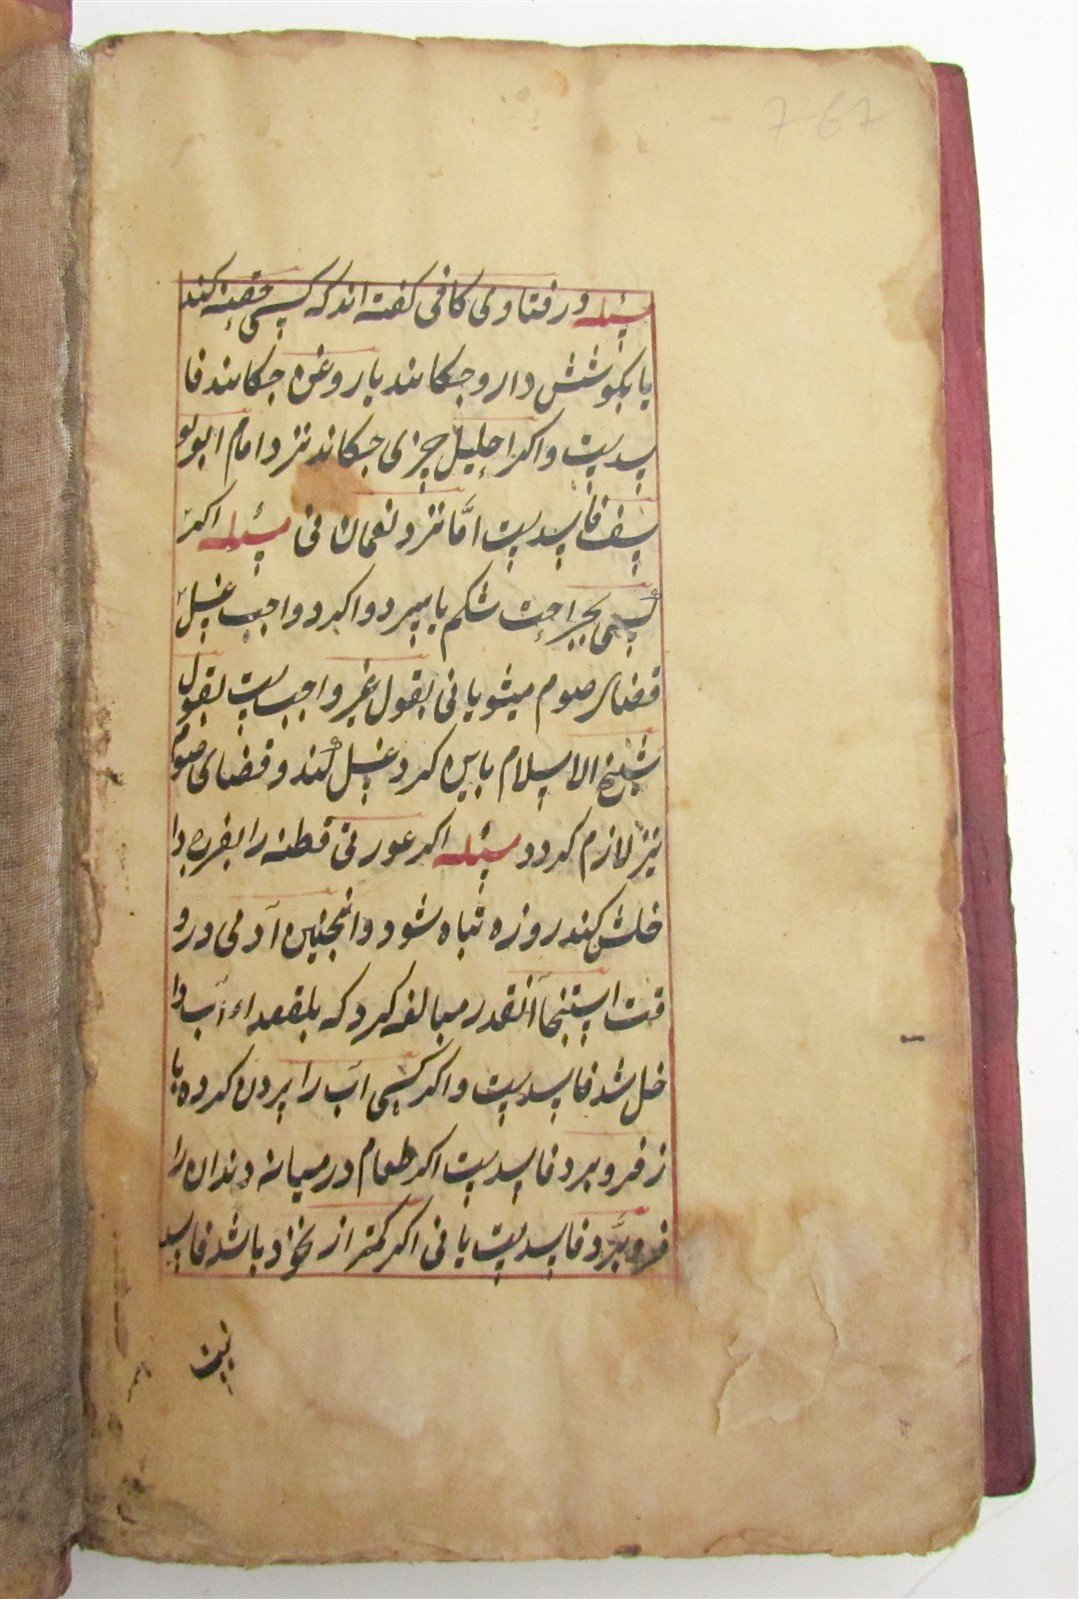 7-67
مسئله در فتاوی کافی گفته اند که کسی حقنه کند
یا بگوشش دارو چکانند یا روغن چکانند فا
سد ست و اگر احلیل چیزی چکاند نزد امام ابو یو
سف فاسد ست امّا نزد نعمان نی مسئله اگر
کسی بجراحت شکم یا بسر دوا کرد واجب غسل
قضای صوم میشو یا نی بقول غیر واجب ست بقول
شیخ الاسلام باین کرد غسل کند و قضای صوم
نیز لازم گردد مسئله اگر عورتی قطنه را بفرج دا
خلش کند روزه تباه شود و انچنین آدمی در و
قت استنجا آنقدر مبالغه کرد که بلقعداء آب دا
خل شد فاسد ست و اگر کسی آب را برون کرده با
ز فرو برد فاسد ست اگر طعام در میانه دندان را
فرو بَرد فاسد ست یا نی اگر کمتر از نخود باشد فاسد
نیت